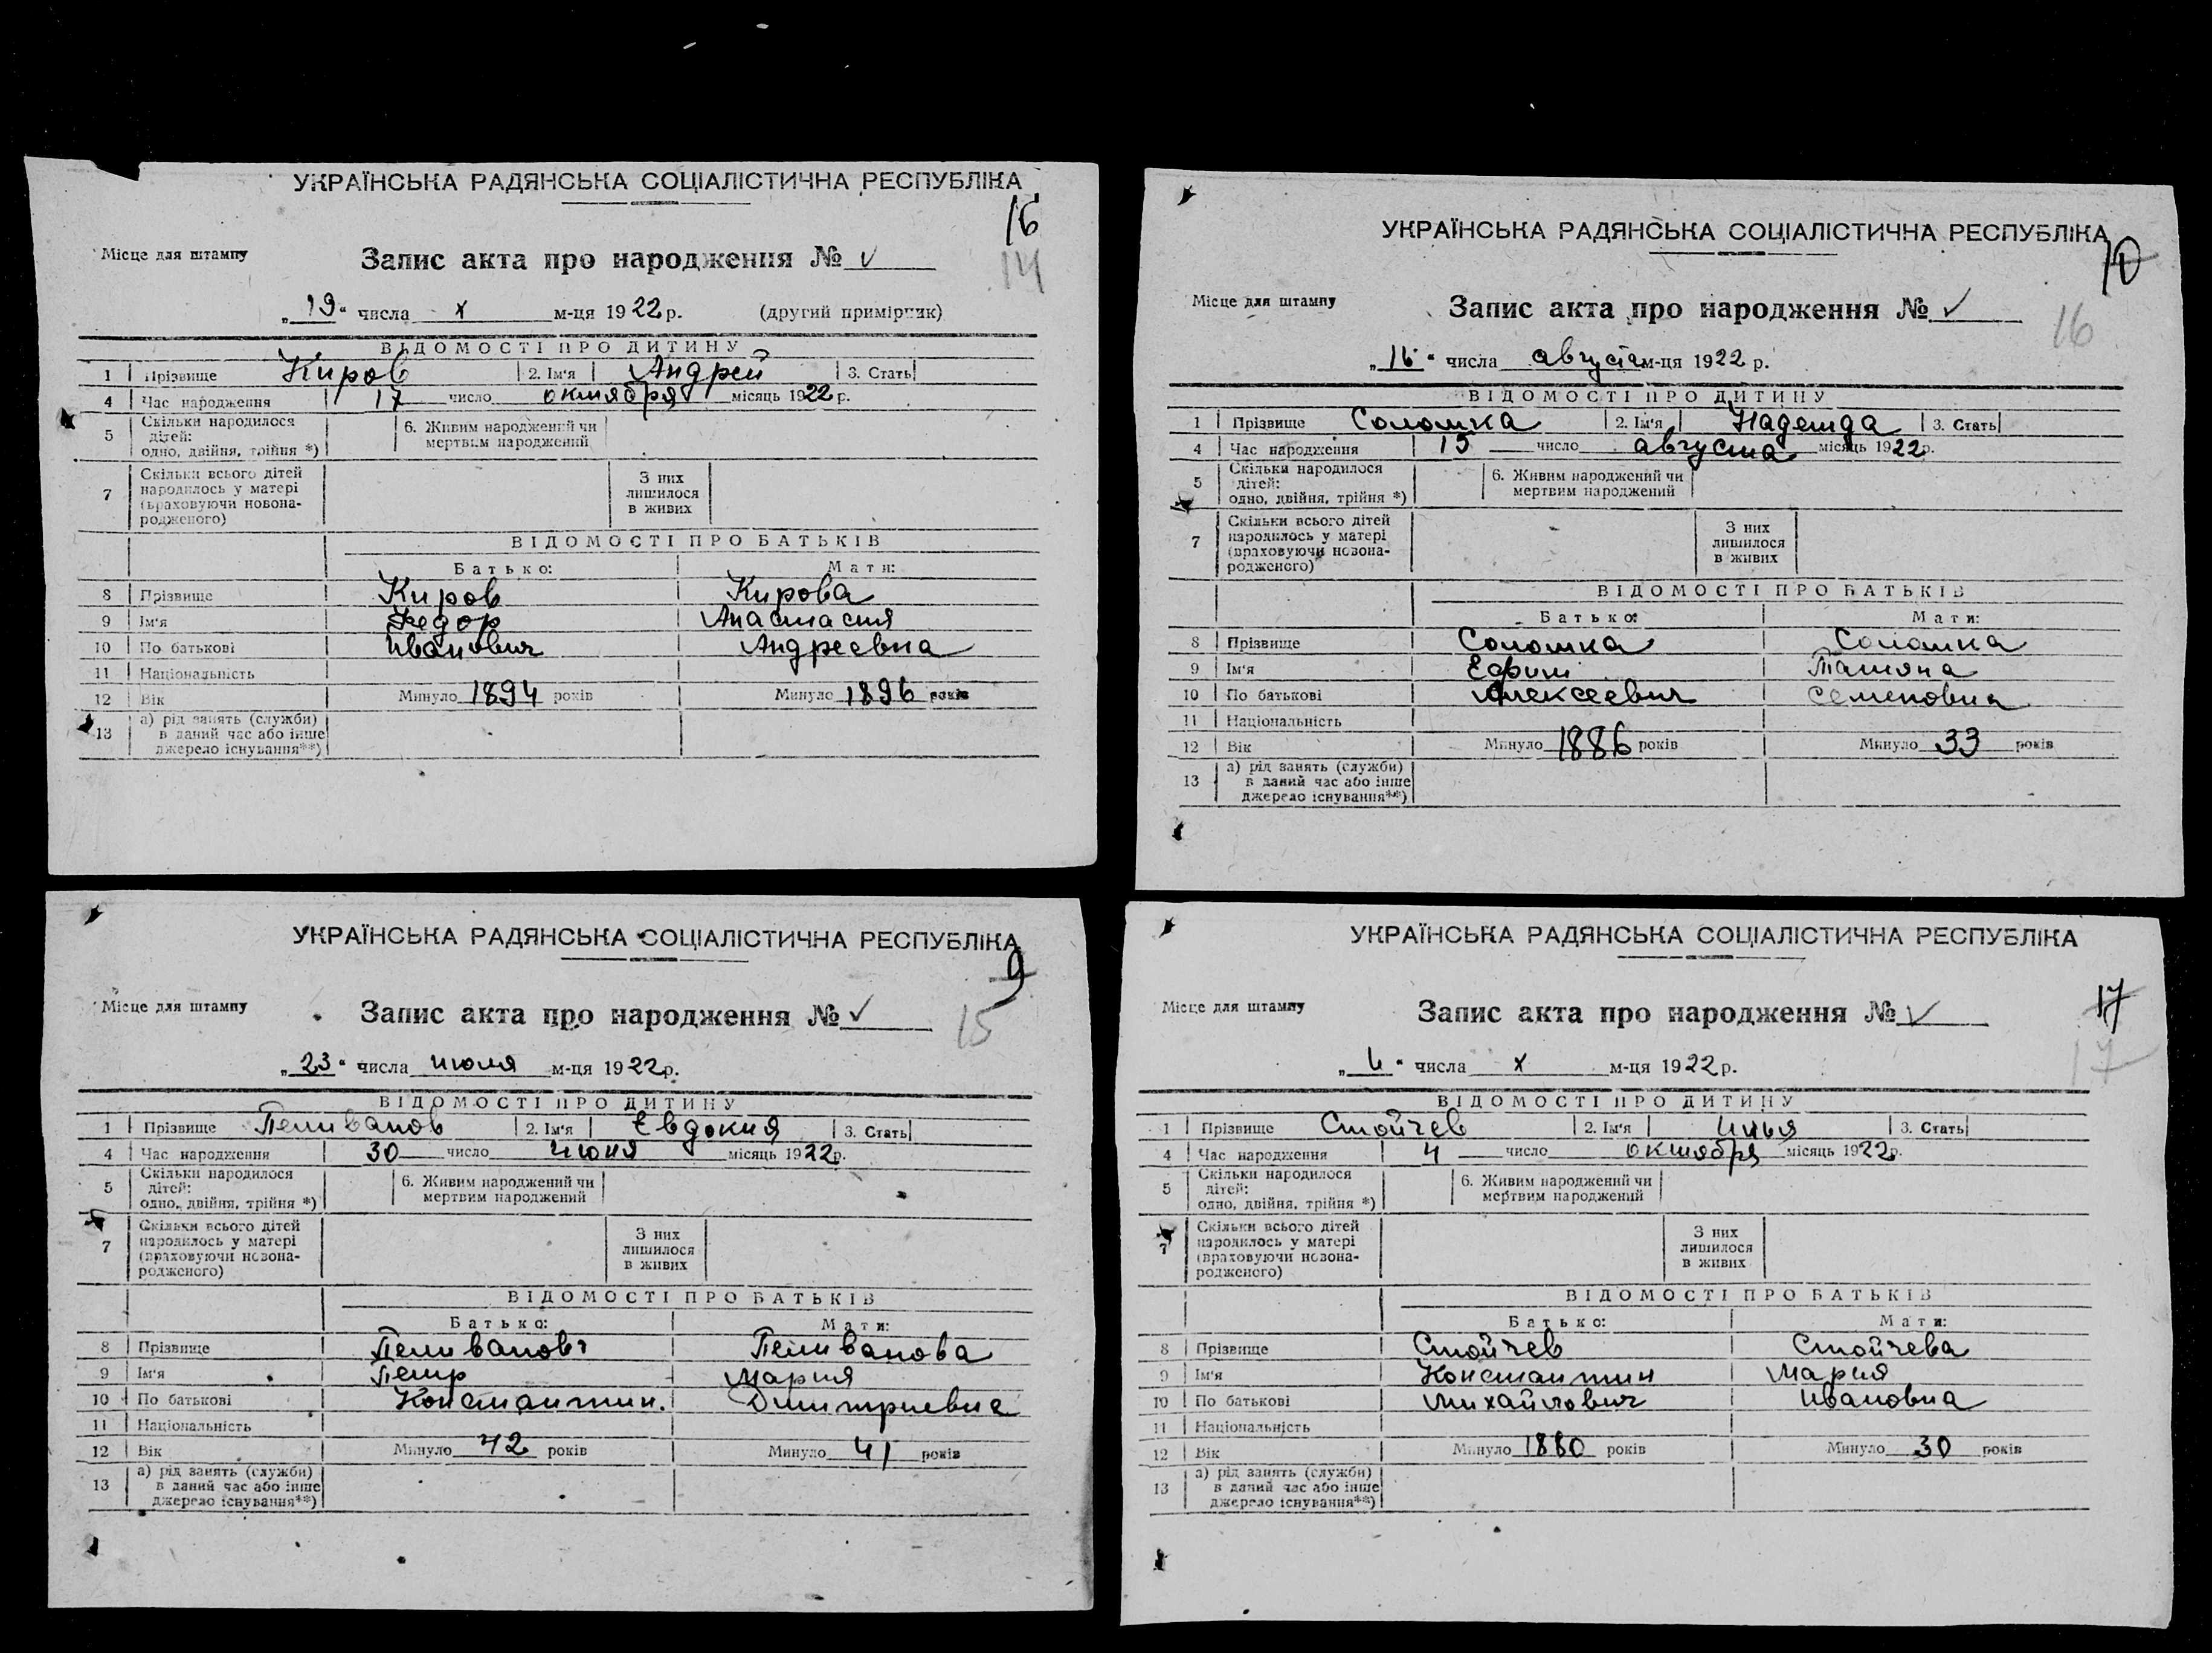 УКРАЇНСЬКА РАДЯНСЬКА СОЦІАЛІСТИЧНА РЕСПУБЛІКА
16
14
Місце для штампу
Запис акта про народження № ✓
„19“ числа X м-ця 1922 р. (другий примірник)
ВІДОМОСТІ ПРО ДИТИНУ
1 Прізвище Киров 2. Ім'я Андрей 3. Стать
4 Час народження 17 число октября місяць 1922 р.
5 Скільки народилося дітей: одно, двійня, трійня *) 6. Живим народжений чи мертвим народжений
7 Скільки всього дітей народилось у матері (враховуючи новона-родженого) З них лишилося в живих
ВІДОМОСТІ ПРО БАТЬКІВ
Батько: Мати:
8 Прізвище Киров Кирова
9 Ім'я Федор Анастасия
10 По батькові Иванович Андреевна
11 Національність
12 Вік Минуло 1894 років Минуло 1896 років
13 а) рід занять (служби) в даний час або інше джерело існування**)
УКРАЇНСЬКА РАДЯНСЬКА СОЦІАЛІСТИЧНА РЕСПУБЛІКА
10
16
Місце для штампу
Запис акта про народження № ✓
„16“ числа августа м-ця 1922 р.
ВІДОМОСТІ ПРО ДИТИНУ
1 Прізвище Соломка 2. Ім'я Надежда 3. Стать
4 Час народження 15 число августа місяць 1922 р.
5 Скільки народилося дітей: одно, двійня, трійня *) 6. Живим народжений чи мертвим народжений
7 Скільки всього дітей народилось у матері (враховуючи новона-родженого) З них лишилося в живих
ВІДОМОСТІ ПРО БАТЬКІВ
Батько: Мати:
8 Прізвище Соломка Соломка
9 Ім'я Ефим Татяна
10 По батькові Алексеевич Семеновна
11 Національність
12 Вік Минуло 1886 років Минуло 33 років
13 а) рід занять (служби) в даний час або інше джерело існування**)
УКРАЇНСЬКА РАДЯНСЬКА СОЦІАЛІСТИЧНА РЕСПУБЛІКА
9
15
Місце для штампу
Запис акта про народження № ✓
„23“ числа июля м-ця 1922 р.
ВІДОМОСТІ ПРО ДИТИНУ
1 Прізвище Пеливанов 2. Ім'я Евдокия 3. Стать
4 Час народження 30 число июня місяць 1922 р.
5 Скільки народилося дітей: одно, двійня, трійня *) 6. Живим народжений чи мертвим народжений
7 Скільки всього дітей народилось у матері (враховуючи новона-родженого) З них лишилося в живих
ВІДОМОСТІ ПРО БАТЬКІВ
Батько: Мати:
8 Прізвище Пеливанов Пеливанова
9 Ім'я Петр Мария
10 По батькові Константин. Димитриевна
11 Національність
12 Вік Минуло 42 років Минуло 41 років
13 а) рід занять (служби) в даний час або інше джерело існування**)
УКРАЇНСЬКА РАДЯНСЬКА СОЦІАЛІСТИЧНА РЕСПУБЛІКА
17
17
Місце для штампу
Запис акта про народження № ✓
числа X м-ця 1922 р.
ВІДОМОСТІ ПРО ДИТИНУ
1 Прізвище Стойчев 2. Ім'я Илья 3. Стать
4 Час народження 4 число октября місяць 1922 р.
5 Скільки народилося дітей: одно, двійня, трійня *) 6. Живим народжений чи мертвим народжений
7 Скільки всього дітей народилось у матері (враховуючи новона-родженого) З них лишилося в живих
ВІДОМОСТІ ПРО БАТЬКІВ
Батько: Мати:
8 Прізвище Стойчев Стойчева
9 Ім'я Константин Мария
10 По батькові Михайлович Ивановна
11 Національність
12 Вік Минуло 1880 років Минуло 30 років
13 а) рід занять (служби) в даний час або інше джерело існування**)